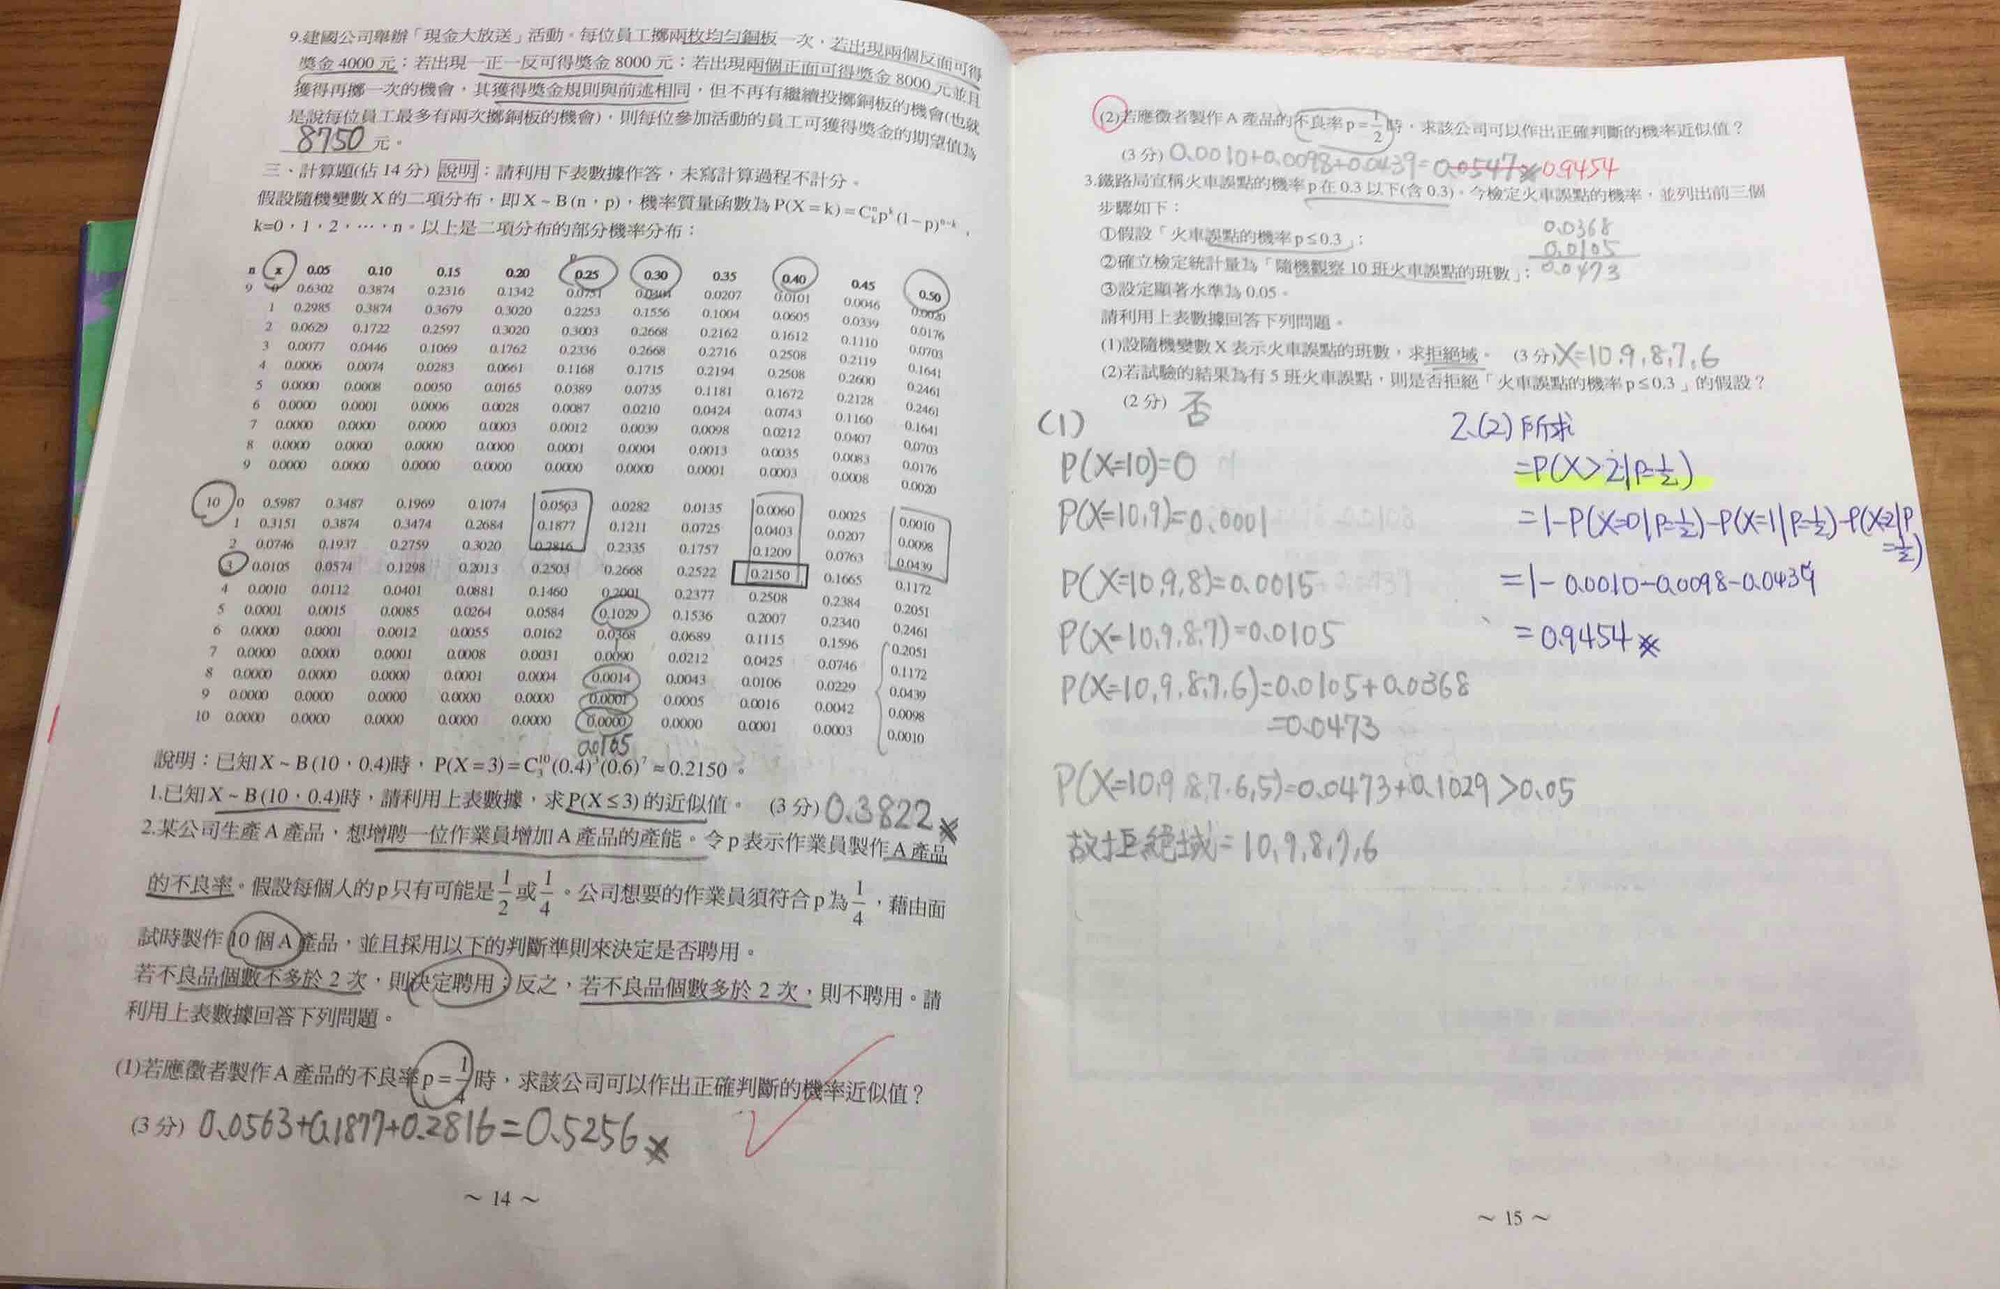 9.建國公司舉辦「現金大放送」活動。每位員工擲兩枚均勻銅板一次,若出現兩個反面可得
獎金4000元;若出現一正一反可得獎金8000元;若出現兩個正面可得獎金8000元並且
獲得再擲一次的機會,其獲得獎金規則與前述相同,但不再有繼續投擲銅板的機會(也就
是說每位員工最多有兩次擲銅板的機會),則每位參加活動的員工可獲得獎金的期望值為
8750 元。
三、計算題(佔14分) 說明:請利用下表數據作答,未寫計算過程不計分。
假設隨機變數X的二項分布,即X~B(n,p),機率質量函數為P(X=k)=C^n_k p^k (1-p)^{n-k},
k=0,1,2,…,n。以上是二項分布的部分機率分布:
p
n x 0.05 0.10 0.15 0.20 0.25 0.30 0.35 0.40 0.45 0.50
9 0 0.6302 0.3874 0.2316 0.1342 0.0751 0.0404 0.0207 0.0101 0.0046 0.0020
1 0.2985 0.3874 0.3679 0.3020 0.2253 0.1556 0.1004 0.0605 0.0339 0.0176
2 0.0629 0.1722 0.2597 0.3020 0.3003 0.2668 0.2162 0.1612 0.1110 0.0703
3 0.0077 0.0446 0.1069 0.1762 0.2336 0.2668 0.2716 0.2508 0.2119 0.1641
4 0.0006 0.0074 0.0283 0.0661 0.1168 0.1715 0.2194 0.2508 0.2600 0.2461
5 0.0000 0.0008 0.0050 0.0165 0.0389 0.0735 0.1181 0.1672 0.2128 0.2461
6 0.0000 0.0001 0.0006 0.0028 0.0087 0.0210 0.0424 0.0743 0.1160 0.1641
7 0.0000 0.0000 0.0000 0.0003 0.0012 0.0039 0.0098 0.0212 0.0407 0.0703
8 0.0000 0.0000 0.0000 0.0000 0.0001 0.0004 0.0013 0.0035 0.0083 0.0176
9 0.0000 0.0000 0.0000 0.0000 0.0000 0.0000 0.0001 0.0003 0.0008 0.0020
10 0 0.5987 0.3487 0.1969 0.1074 0.0563 0.0282 0.0135 0.0060 0.0025 0.0010
1 0.3151 0.3874 0.3474 0.2684 0.1877 0.1211 0.0725 0.0403 0.0207 0.0098
2 0.0746 0.1937 0.2759 0.3020 0.2816 0.2335 0.1757 0.1209 0.0763 0.0439
3 0.0105 0.0574 0.1298 0.2013 0.2503 0.2668 0.2522 0.2150 0.1665 0.1172
4 0.0010 0.0112 0.0401 0.0881 0.1460 0.2001 0.2377 0.2508 0.2384 0.2051
5 0.0001 0.0015 0.0085 0.0264 0.0584 0.1029 0.1536 0.2007 0.2340 0.2461
6 0.0000 0.0001 0.0012 0.0055 0.0162 0.0368 0.0689 0.1115 0.1596 0.2051
7 0.0000 0.0000 0.0001 0.0008 0.0031 0.0090 0.0212 0.0425 0.0746 0.1172
8 0.0000 0.0000 0.0000 0.0001 0.0004 0.0014 0.0043 0.0106 0.0229 0.0439
9 0.0000 0.0000 0.0000 0.0000 0.0000 0.0001 0.0005 0.0016 0.0042 0.0098
10 0.0000 0.0000 0.0000 0.0000 0.0000 0.0000 0.0000 0.0001 0.0003 0.0010
0.0105
說明:已知X~B(10,0.4)時,P(X=3)=C^10_3 (0.4)^3 (0.6)^7≈0.2150。
1.已知X~B(10,0.4)時,請利用上表數據,求P(X≤3)的近似值。 (3分) 0.3822
2.某公司生產A產品,想增聘一位作業員增加A產品的產能。令p表示作業員製作A產品
的不良率。假設每個人的p只有可能是1/2或1/4。公司想要的作業員須符合p為1/4,藉由面
試時製作10個A產品,並且採用以下的判斷準則來決定是否聘用。
若不良品個數不多於2次,則決定聘用;反之,若不良品個數多於2次,則不聘用。請
利用上表數據回答下列問題。
(1)若應徵者製作A產品的不良率p=1/4時,求該公司可以作出正確判斷的機率近似值?
(3分) 0.0563+0.1877+0.2816=0.5256
~ 14 ~
(2)若應徵者製作A產品的不良率p=1/2時,求該公司可以作出正確判斷的機率近似值?
(3分) 0.0010+0.0098+0.0439=0.0547 0.9454
3.鐵路局宣稱火車誤點的機率p在0.3以下(含0.3)。今檢定火車誤點的機率,並列出前三個
步驟如下:
①假設「火車誤點的機率p≤0.3」;
0.0368
0.0105
0.0473
②確立檢定統計量為「隨機觀察10班火車誤點的班數」;
③設定顯著水準為0.05。
請利用上表數據回答下列問題。
(1)設隨機變數X表示火車誤點的班數,求拒絕域。 (3分) X=10,9,8,7,6
(2)若試驗的結果為有5班火車誤點,則是否拒絕「火車誤點的機率p≤0.3」的假設?
(2分) 否
(1)
P(X=10)=0
P(X=10,9)=0.0001
P(X=10,9,8)=0.0015
P(X=10,9,8,7)=0.0105
P(X=10,9,8,7,6)=0.0105+0.0368
=0.0473
P(X=10,9,8,7,6,5)=0.0473+0.1029>0.05
故拒絕域=10,9,8,7,6
2.(2)所求
=P(X>2|P=1/2)
=1-P(X=0|P=1/2)-P(X=1|P=1/2)-P(X=2|P=1/2)
=1-0.0010-0.0098-0.0439
=0.9454
~ 15 ~